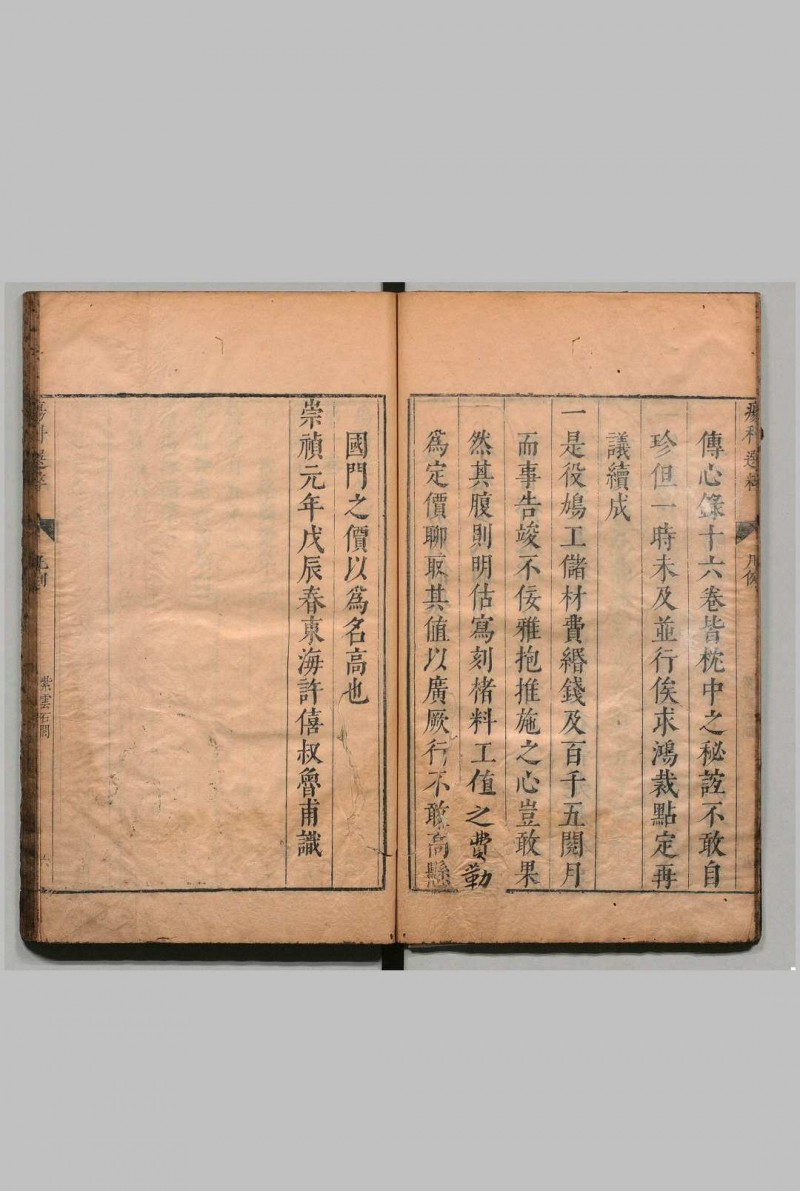 傳心錄十六卷皆枕中之秘誼不敢自
珍但一時未及並行俟求鴻裁點定再
議續成
一是役鳩工儲材費緡錢及百千五閱月
而事告竣不佞雅抱推施之心豈敢果
然其腹則明估寫刻楮料工值之費勒
爲定價聊取其値以廣厥行不敢高懸
國門之價以爲名高也
崇禎元年戊辰春東海許僖叔魯甫識